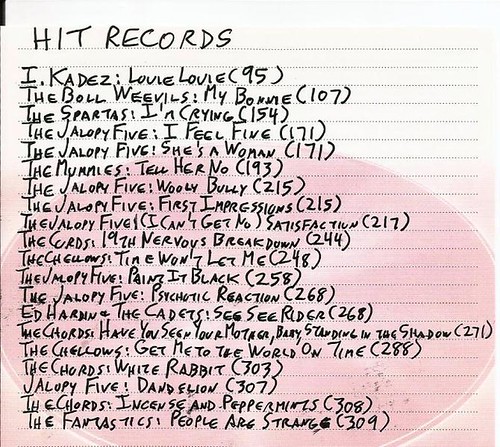 HIT RECORDS
I. KADEZ: LOUIE LOUIE (95)
THE BOLL WEEVILS: MY BONNIE (107)
THE SPARTAS: I'M CRYING (154)
THE JALOPY FIVE: I FEEL FINE (171)
THE JALOPY FIVE: SHE'S A WOMAN (171)
THE MUMMIES: TELL HER NO (193)
THE JALOPY FIVE: WOOLY BULLY (215)
THE JALOPY FIVE: FIRST IMPRESSIONS (215)
THE JALOPY FIVE: (I CAN'T GET NO) SATISFACTION (217)
THE CORDS: 19TH NERVOUS BREAKDOWN (244)
THE CHELLOWS: TIME WON'T LET ME (248)
THE JALOPY FIVE: PAINT IT BLACK (258)
THE JALOPY FIVE: PSYCHOTIC REACTION (268)
ED HARDIN & THE CADETS: SEE SEE RIDER (268)
THE CHORDS: HAVE YOU SEEN YOUR MOTHER, BABY, STANDING IN THE SHADOW (271)
THE CHELLOWS: GET ME TO THE WORLD ON TIME (288)
THE CHORDS: WHITE RABBIT (303)
JALOPY FIVE: DANDELION (307)
THE CHORDS: INCENSE AND PEPPERMINTS (308)
THE FANTASTICS: PEOPLE ARE STRANGE (309)